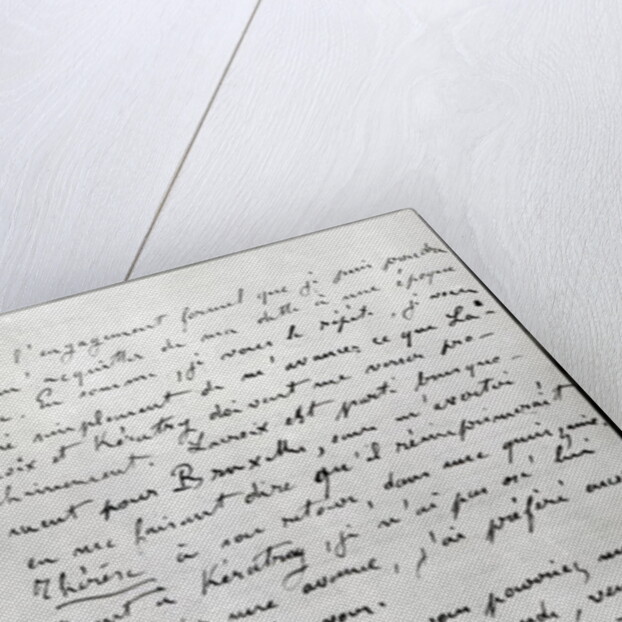 l'engagement formel que je puis prendre
m'acquitter de ma dette à une époque
En somme, je vous le répète, je vous
simplement de m'avancer ce que La-
croix et Kératry doivent me verser pro-
chainement. Lacroix est parti brusque-
ment pour Bruxelles, sans m'avertir,
en me faisant dire qu'il réimprimerait
Thérèse à son retour, dans une quinzaine.
à Kératry, je n'ai pas osé lui
une avance, j'ai préféré
vous pourriez